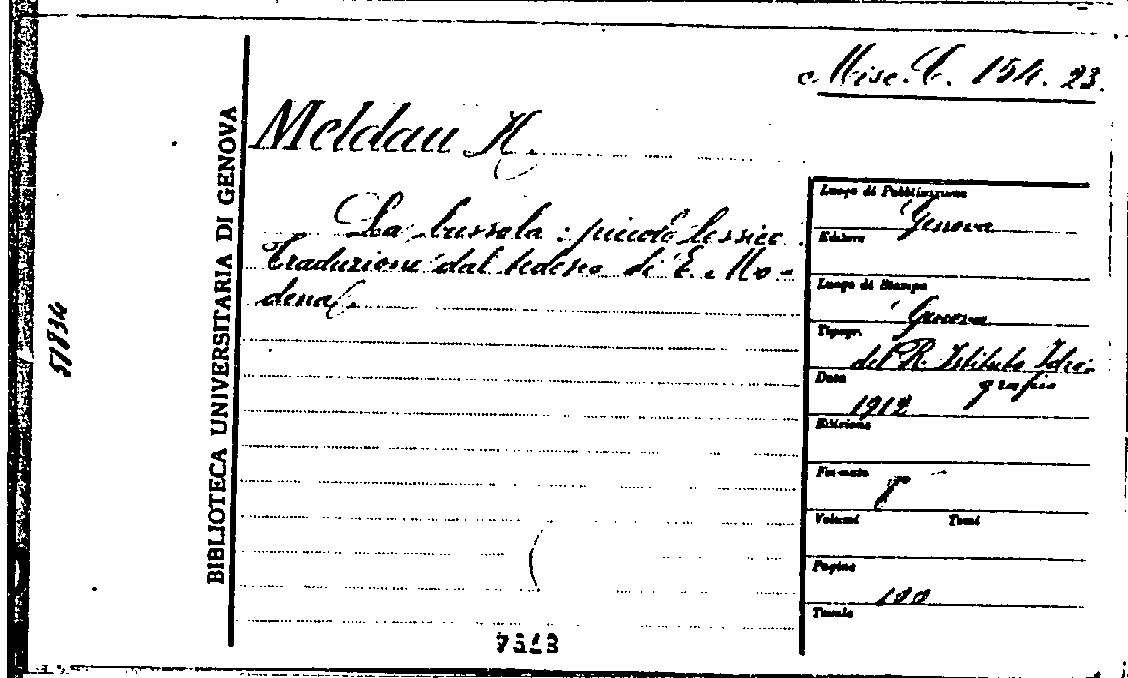 Misc. C. 154. 23.
Meldau H.
La bussola : piccolo lessico
Traduzione dal tedesco di E. Mo-
dena.
BIBLIOTECA UNIVERSITARIA DI GENOVA
57834
Luogo di Pubblicazione
Genova
Editore
Luogo di Stampa
Genova
Tipogr.
del R. Istituto Idro-
grafico
Data
1912
Edizione
Formato
8°
Volumi Tomi
Pagine
100
Tavole